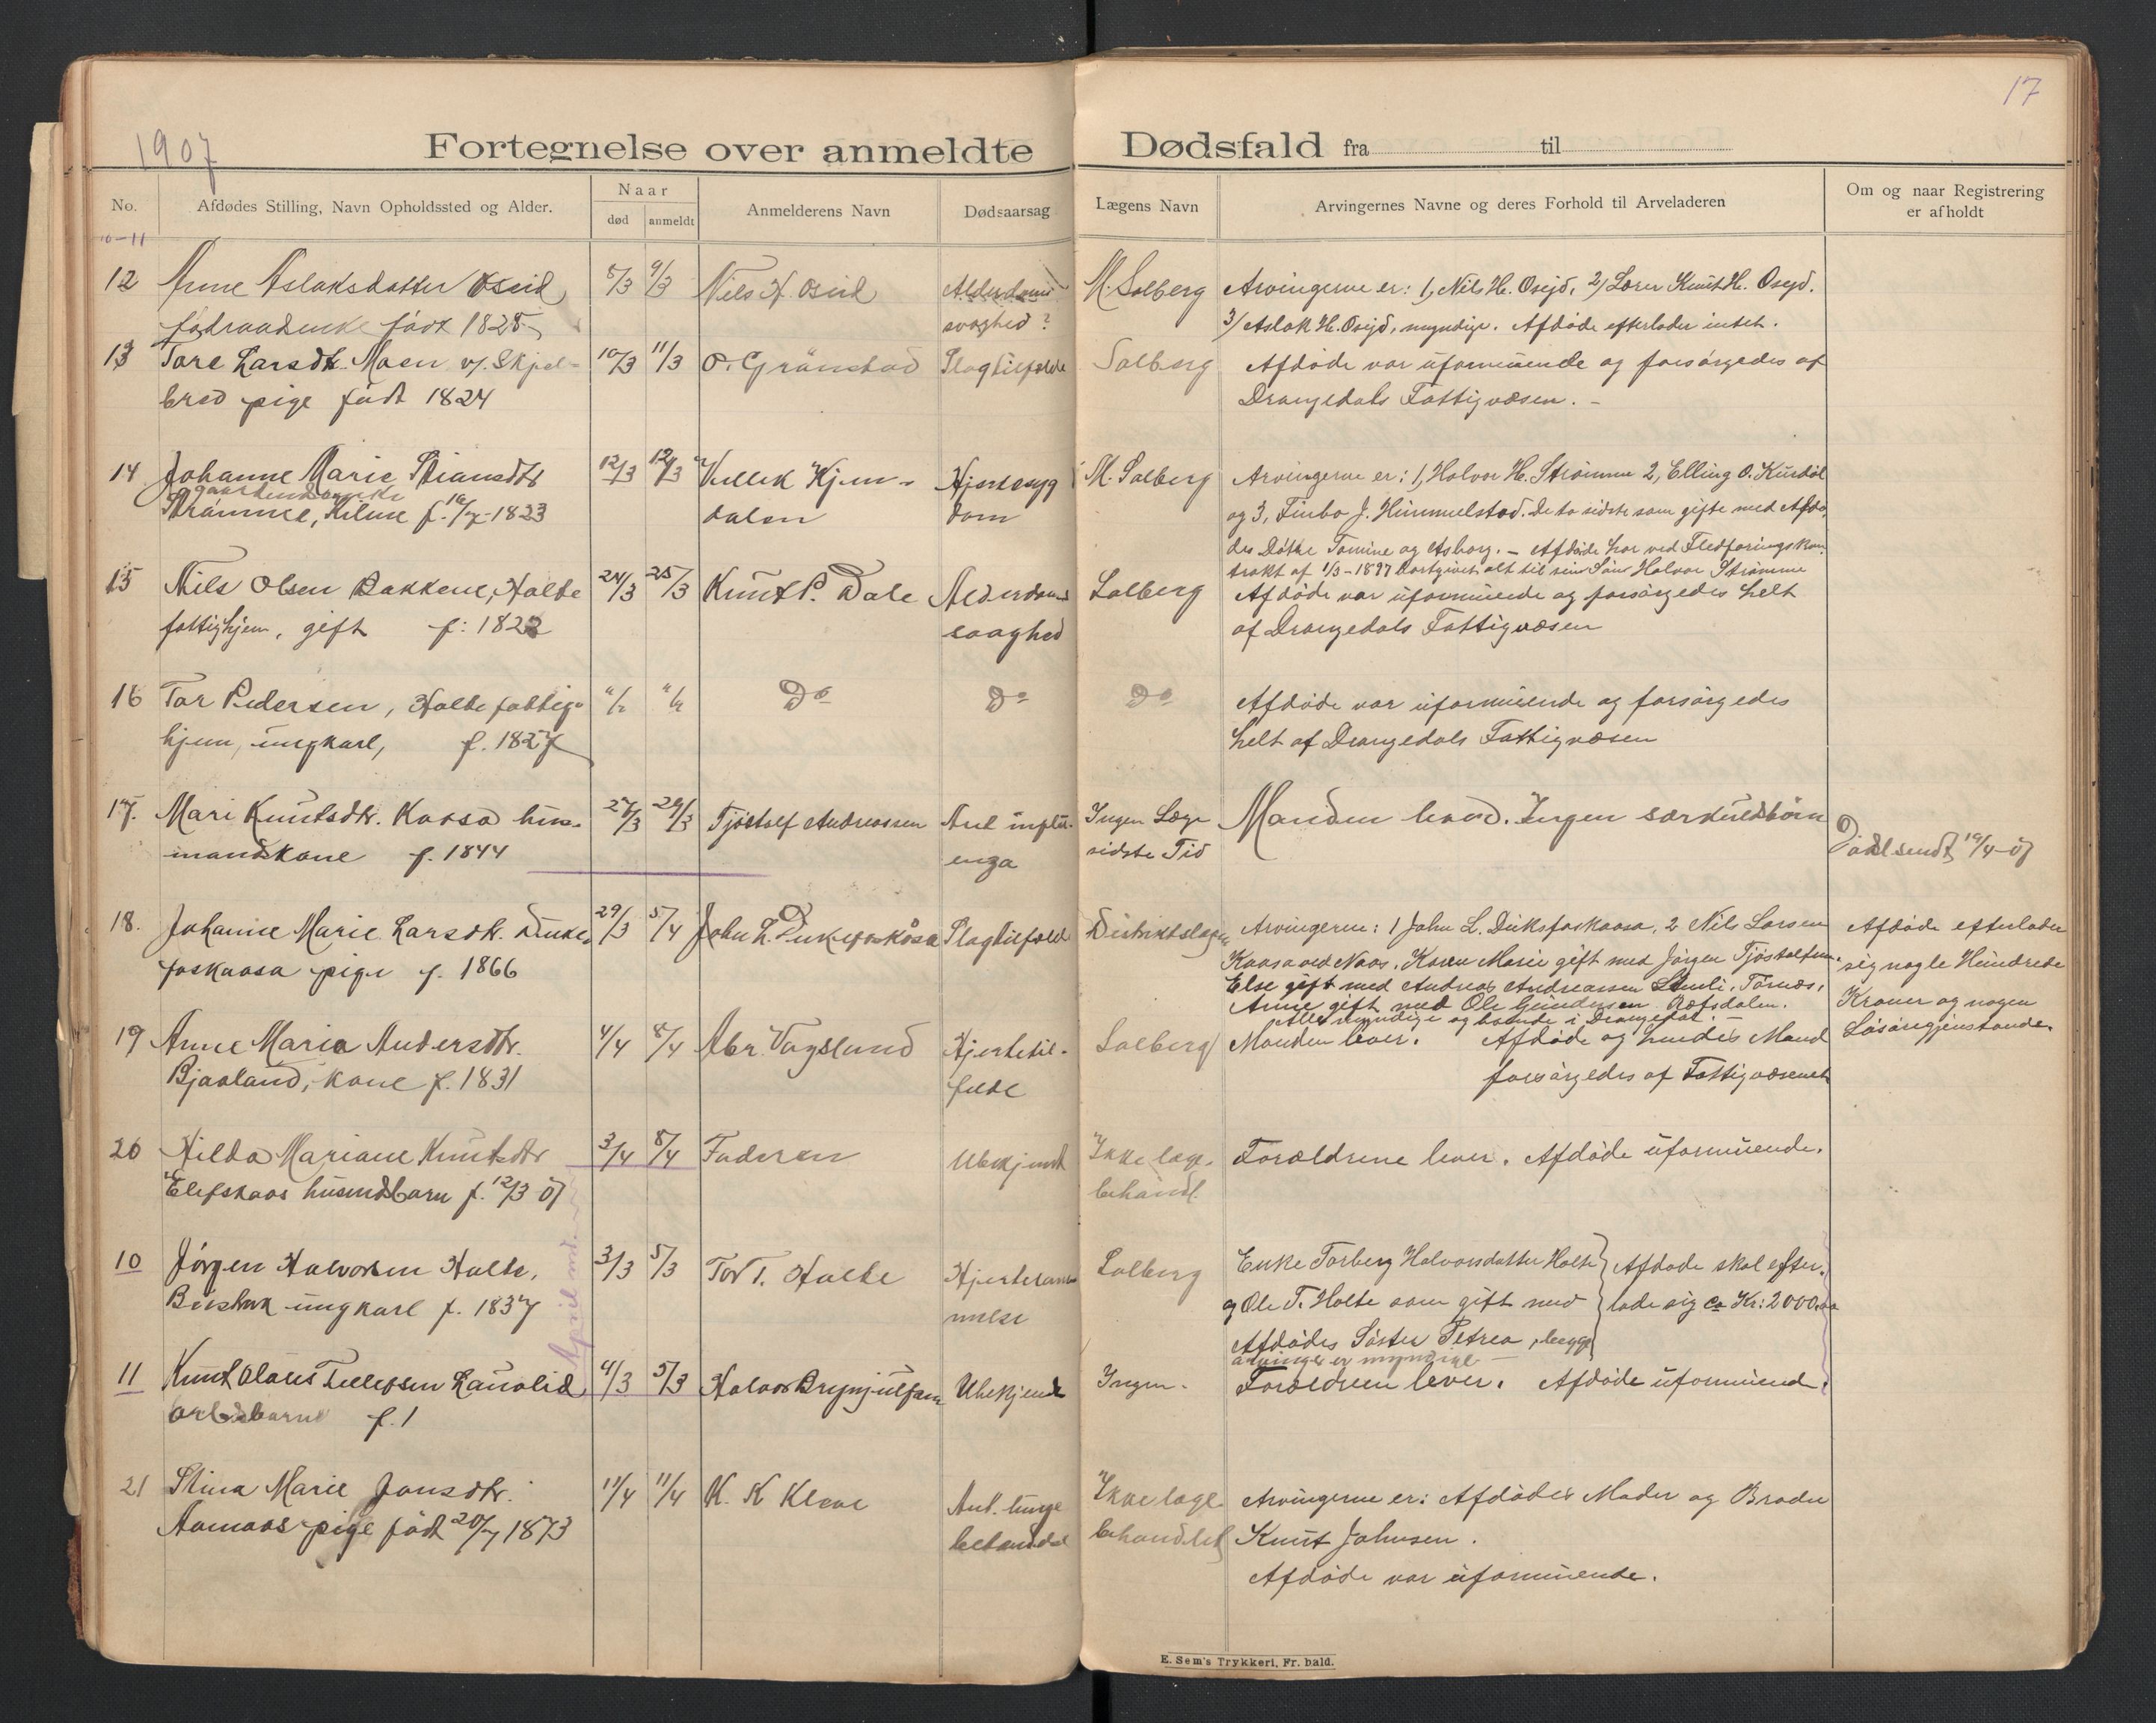 1907
17
Fortegnelse over anmeldte Dødsfald fra til
No.
Afdødes Stilling, Navn Opholdssted og Alder.
Naar
død
anmeldt
Anmelderens Navn
Dødsaarsag
Lægens Navn
Arvingernes Navne og deres Forhold til Arveladeren
Om og naar Registrering
er afholdt
10-11
12 Anne Aslaksdatter Oseid 8/3 9/3 Niels H. Oseid Alderdoms M. Solberg Arvingerne er: 1, Nils H. Oseid, 2) Lærer Knut H. Oseid.
födraadenke født 1825 svaghed? 3/ Aslak H. Oseid, myndige. Afdøde efterlader intet.
13 Tore Larsdtr. Moen v/ Skjel- 10/3 11/3 O. Grønstad Slagtilfælde Solberg Afdøde var uformuende og forsørgedes af
bred pige født 1824 Drangedals Fattigvæsen. -
14 Johanne Marie Stiansdtr 12/3 12/3 Vullik Kjen- Hjertesyg M. Solberg Arvingerne er: 1, Halvor H. Strømme 2, Elling O. Kurdøl
gaardmandsenke
Strømme, Kilene f. 16/7-1823 dalen dom og 3, Finbo J. Himmelstad. De to sidste som gifte med Afdø-
des Døttre Tomine og Asborg. - Afdøde har ved Fledføringskon-
trakt af 1/3-1897 bortgivet alt til sin Søn Halvor Strømme
15 Nils Olsen Bakkene, Holte 24/3 25/3 Knut P. Dale Alderdoms Solberg Afdøde var uformuende og forsørgedes helt
fattighjem, gift f: 1822 svaghed af Drangedals Fattigvæsen
16 Tor Pedersen, Holte fattig- "/" "/" Do Do Do Afdøde var uformuende og forsørgedes
hjem, ungkarl, f. 1827 helt af Drangedals Fattigvæsen
17. Mari Knutsdtr. Kaasa hus- 27/3 29/3 Tjöstolf Andreassen Ant influ- Ingen Læge Manden lever. Ingen særkuldbörn
mandskone f. 1844 enza sidste Tid Dødsl sendt 19/4-07
18. Johanne Marie Larsdtr. Dukes 29/3 5/4 John L. Dukefoskåsa Slagtilfælde Distriktslægen Arvingerne: 1 John L. Duksfoskaasa, 2 Nils Larsen Afdøde efterlader
foskaasa pige f. 1866 Kaasa ved Naas, Karen Marie gift med Jørgen Tjøstolfsen, sig nogle Hundrede
Else gift med Andreas Andreassen Stenli, Tørnes, Kroner og nogen
Anne gift med Ole Gundersen Ræfsdalen. Løsøregjenstande.
Alle myndige og boende i Drangedal. -
19 Anne Maria Andersdtr. 4/4 8/4 Abr. Vogslund Hjertetil- Solberg Manden lever. Afdøde og hendes Mand
Bjaaland, kone f. 1831 fælde forsørgedes af Fattigvæsenet
20 Hilda Mariane Knutsdtr 3/4 8/4 Faderen Ubekjendt Ikke læge- Forældrene lever. Afdøde uformuende.
Elefskaas husmdsbarn f. 12/3 07 behandl.
10 Jörgen Halvorsen Holte, 3/3 5/3 Tov T. Holte Hjertelam- Solberg Enke Torberg Halvorsdatter Holte Afdøde skal efter-
Busbak ungkarl f. 1837 melse og Ole T. Holte som gift med lade sig ca Kr: 2000.00
Afdødes Søster Petrea, begge
arvinger er myndige -
11 Knut Olaus Tellefsen Lauvlid 4/3 5/3 Halvor Brynjulfsen Ubekjendt Ingen. Forældren lever. Afdøde uformuend.
arbdsbarn f. 1
April md.
21 Stina Marie Jonsdtr. 11/4 11/4 K. K Kleve Ant. lunge Ikke læge- Arvingerne er: Afdødes Moder og Broder
Aamaas pige född 20/7 1873 betændel behandlet Knut Johnsen.
Afdøde var uformuende.
E. Sem's Trykkeri, Fr. hald.